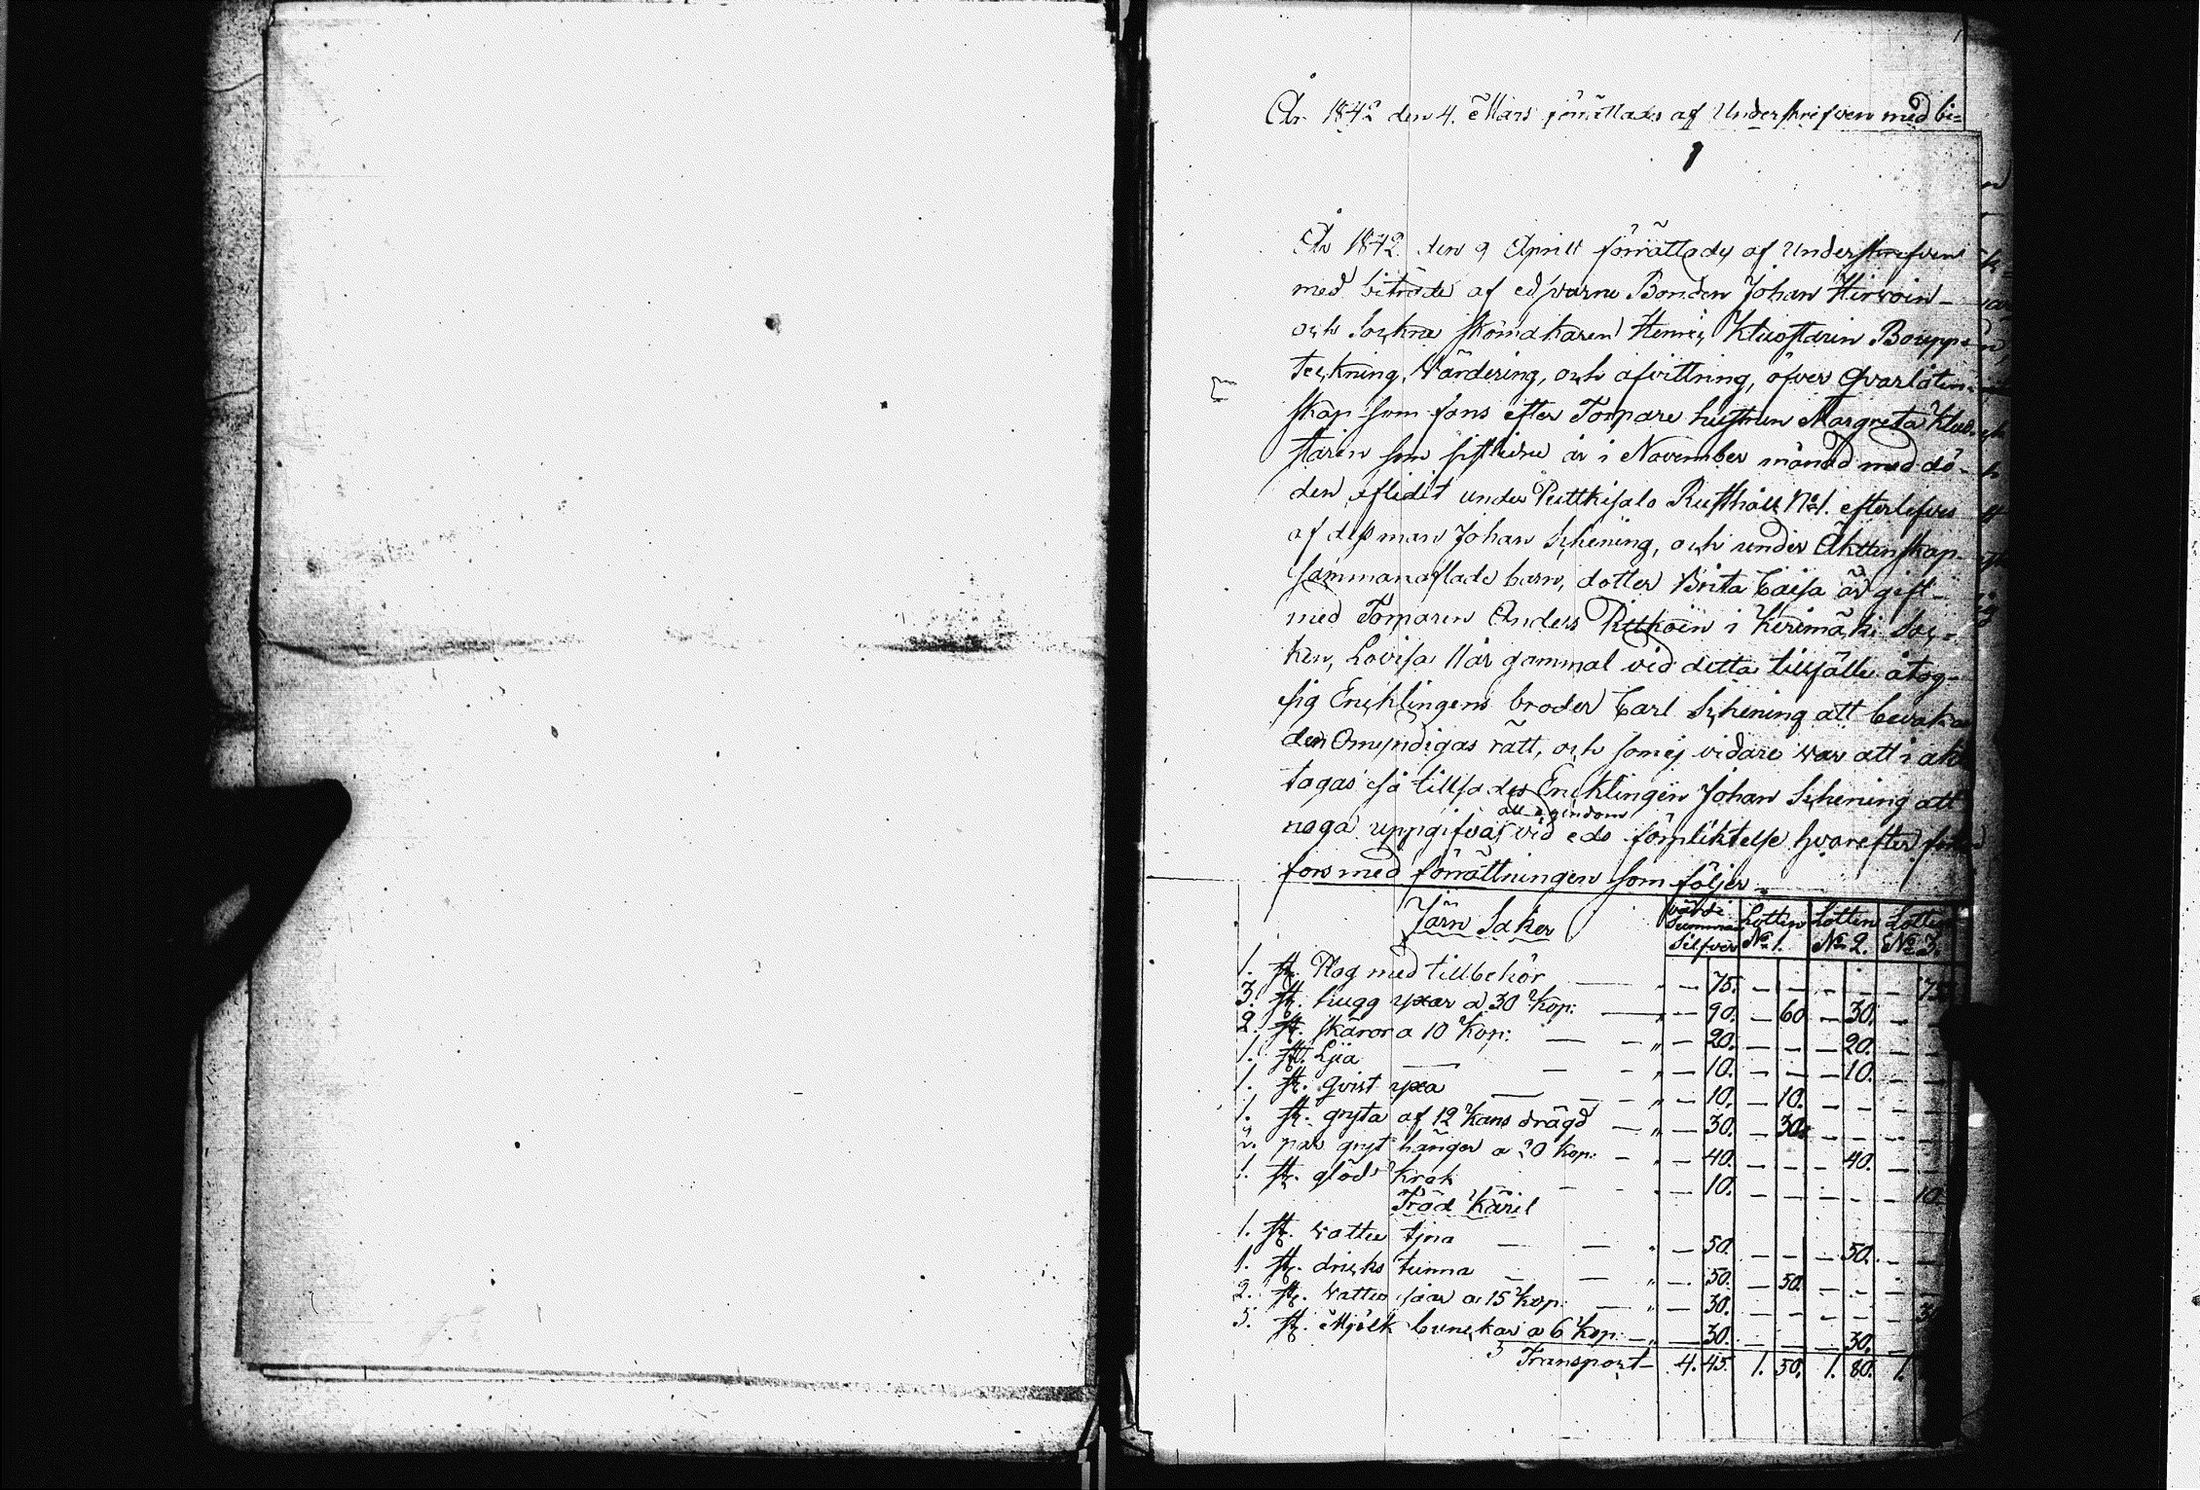 År 1842 den 4. Mars förrättades af Underskrifven med bi=
1
År 1842. den 9 Aprill förrättades af Underskrefven
med biträde af edsvurne Bonden Johan Hirvoin
och Sockne skömakaren Kluostarin Boupp=
teckning, Värdering, och afvittring, öfver Qvarlåten=
skap som fans efter Torpare hustrun Margreta Kluo=
starin som sistledne år i November månad med dö-
den aflidit under Puttkisalo Rusthåll No 1. efterlefves
af dess man Johan Schening, och under Äktenskap
sammanaflade barn, dotter Brita Caisa är gift
med Torparen Anders i Kerimäki Soc=
ken, Lovisa 11 år gammal vid detta tillfälle åtog
sig Encklingens broder Carl Schening att bevaka
den Omyndigas rätt, och som ej vidare var att i akt
tagas så tillsades Encklingen Johan Schening att
all egendom
noga uppgifva vid eds förpliktelse hvarefter
fors med förrättningen som följer
Järn Saker
Värdi Summan Silfver Lotten No 1. Lotten No 2. Lotten No 3.
1. st. Plog med tillbehör — — 75. — — — — — 75
3. st. hugg yxar a 30 Kop: — — 90. — 60 — 30. — —
2. st. skäror a 10 Kop: — — 20. — — — 20. — —
1. st. Lija — — 10. — — — 10. — —
1. st. qvist yxa — — 10. — 10. — — — —
1. st. gryta af 12 Kans drägd — — 30. — 30. — — — —
2. par gryt hänger a 20 Kop: — — 40. — — — 40. — —
1. st. glöd krok — — 10. — — — — — 10
Träd Käril
1. st. vatten tjna — — 50. — — — 50. — —
1. st. dricks tunna — — 50. — 50. — — — —
2. st. vatten såar a 15 Kop: — — 30. — — — — — 30
5. st. Mjölk bunckar a 6 Kop: — — 30. — — — 30. — —
Transport — 4. 45. 1. 50. 1. 80. 1.